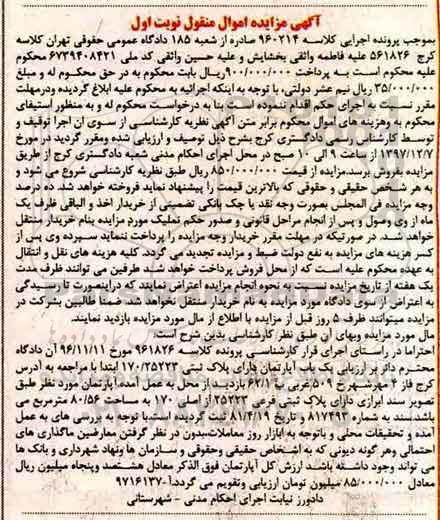 آگهی مزایده اموال منقول نوبت اول
بموجب پرونده اجرایی کلاسه ۹۶۰۲۱۴ صادره از شعبه ۱۸۵ دادگاه عمومی حقوقی تهران کلاسه
کرج ۵۶۱۸۲۶ علیه فاطمه واثقی بخشایش و علیه حسین واثقی کد ملی ۶۷۳۹۴۰۸۴۲۱ محکوم
علیه محکوم است به پرداخت ۹۰۰/۰۰۰/۰۰۰ریال بابت محکوم به در حق محکوم له و مبلغ
۳۵/۰۰۰/۰۰۰ ریال نیم عشر دولتی، با توجه به اینکه اجرائیه به محکوم علیه ابلاغ گردیده ودرمهلت
مقرر نسبت به اجرای حکم اقدام ننموده است بنا به درخواست محکوم له و به منظور استیفای
محکوم به وهزینه های اموال محکوم برابر متن آگهی نظریه کارشناسی از سوی ان اجرا توقیف و
توسط کارشناس رسمی دادگستری کرج بشرح ذیل توصیف و ارزیابی شده ومقرر گردید در مورخ
۱۳۹۷/۱۲/۷ از ساعت ۹ الی ۱۰ صبح در محل اجرای احکام مدنی شعبه دادگستری کرج از طریق
مزایده بفروش برسد.مزایده از قیمت ۸۵۰/۰۰۰/۰۰۰ ریال طبق نظریه کارشناسی شروع می شود و
به هر شخص حقیقی و حقوقی که بالاترین قیمت را پیشنهاد نماید فروخته خواهد شد. ده درصد
وجه مزایده فی المجلس بصورت وجه نقد یا چک بانکی تضمینی از خریدار اخذ و الباقی ظرف یک
ماه از وی وصول و پس از انجام مراحل قانونی و صدور حکم تملیک مورد مزایده بنام خریدار منتقل
خواهد شد. در صورتیکه در مهلت مقرر خریدار وجه مزایده را پرداخت ننماید سپرده وی پس از
کسر هزینه های مزایده به نفع دولت ضبط و مزایده تجدید می گردد. کلیه هزینه های نقل و انتقال
به عهده محکوم علیه است که از محل فروش پرداخت خواهد شد طرفین می توانند ظرف مدت
یک هفته از تاریخ مزایده نسبت به نحوه انجام مزایده اعتراض نمایند که دراینصورت تا رسیدگی
به اعتراض از سوی دادگاه مورد مزایده به نام خریدار منتقل نخواهد شد. ضمنا طالبین بشرکت در
مزایده میتوانند ظرف ۵ روز قبل از مزایده با اطلاع از مال مورد مزایده بازدید نمایند.
مال مورد مزایده وبهای آن طبق نظر کارشناسی بدین شرح است:
احتراما در راستای اجرای قرار کارشناسی پرونده کلاسه ۹۶۱۸۲۶ مورخ ۹۶/۱۱/۱۱ آن دادگاه
محترم دائر بر ارزیابی یک باب آپارتمان دارای پلاک ثبتی ۱۷۰/۲۵۲۲۳ ابتدا با مراجعه به آدرس
کرج فاز ۴ مهرشهر خ ۵۰۹ غربی پ ۶۲/۱ بازدید از محل به عمل آمده.آپارتمان مورد نظر طبق
تصویر سند ابرازی دارای پلاک ثبتی فرعی ۲۵۲۲۳ از اصلی ۱۷۰ به مساحت ۸۰/۵۶ مترمربع می
باشد.سند به شماره ۸۱۷۴۹۳ و تاریخ ۸۱/۴/۱۹ ثبت گردیده است.با توجه به بررسی های به عمل
آمده و تحقیقات محلی و باتوجه به بازار روز معاملات،بدون در نظر گرفتن معارضین ماگذاری های
احتمالی وهر گونه دیونی که به اشخاص حقیقی وحقوقی و سازمان ها ونهاد شهرداری و بانک ها
می تواند وجود داشته باشد ارزش کل آپارتمان فوق الذکر معادل هشتصد وپنجاه میلیون ریال
معادل ۸۵/۰۰۰/۰۰۰ میلیون تومان ارزیابی وتقویم می گردد.آ-۹۷۱۶۱۳۷
دادورز نیابت اجرای احکام مدنی - شهرستانی